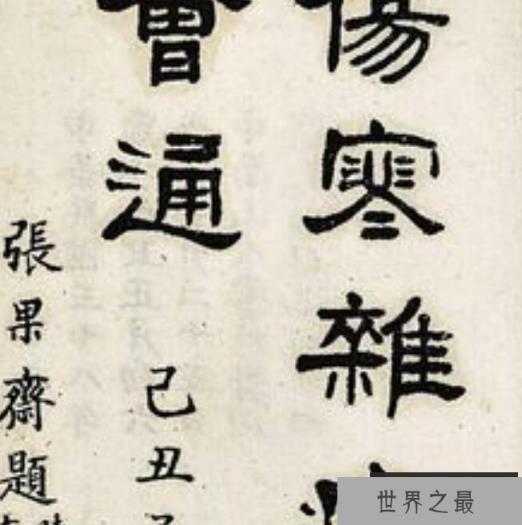 傷寒雜
會通
己丑
張果齋題
世界之最